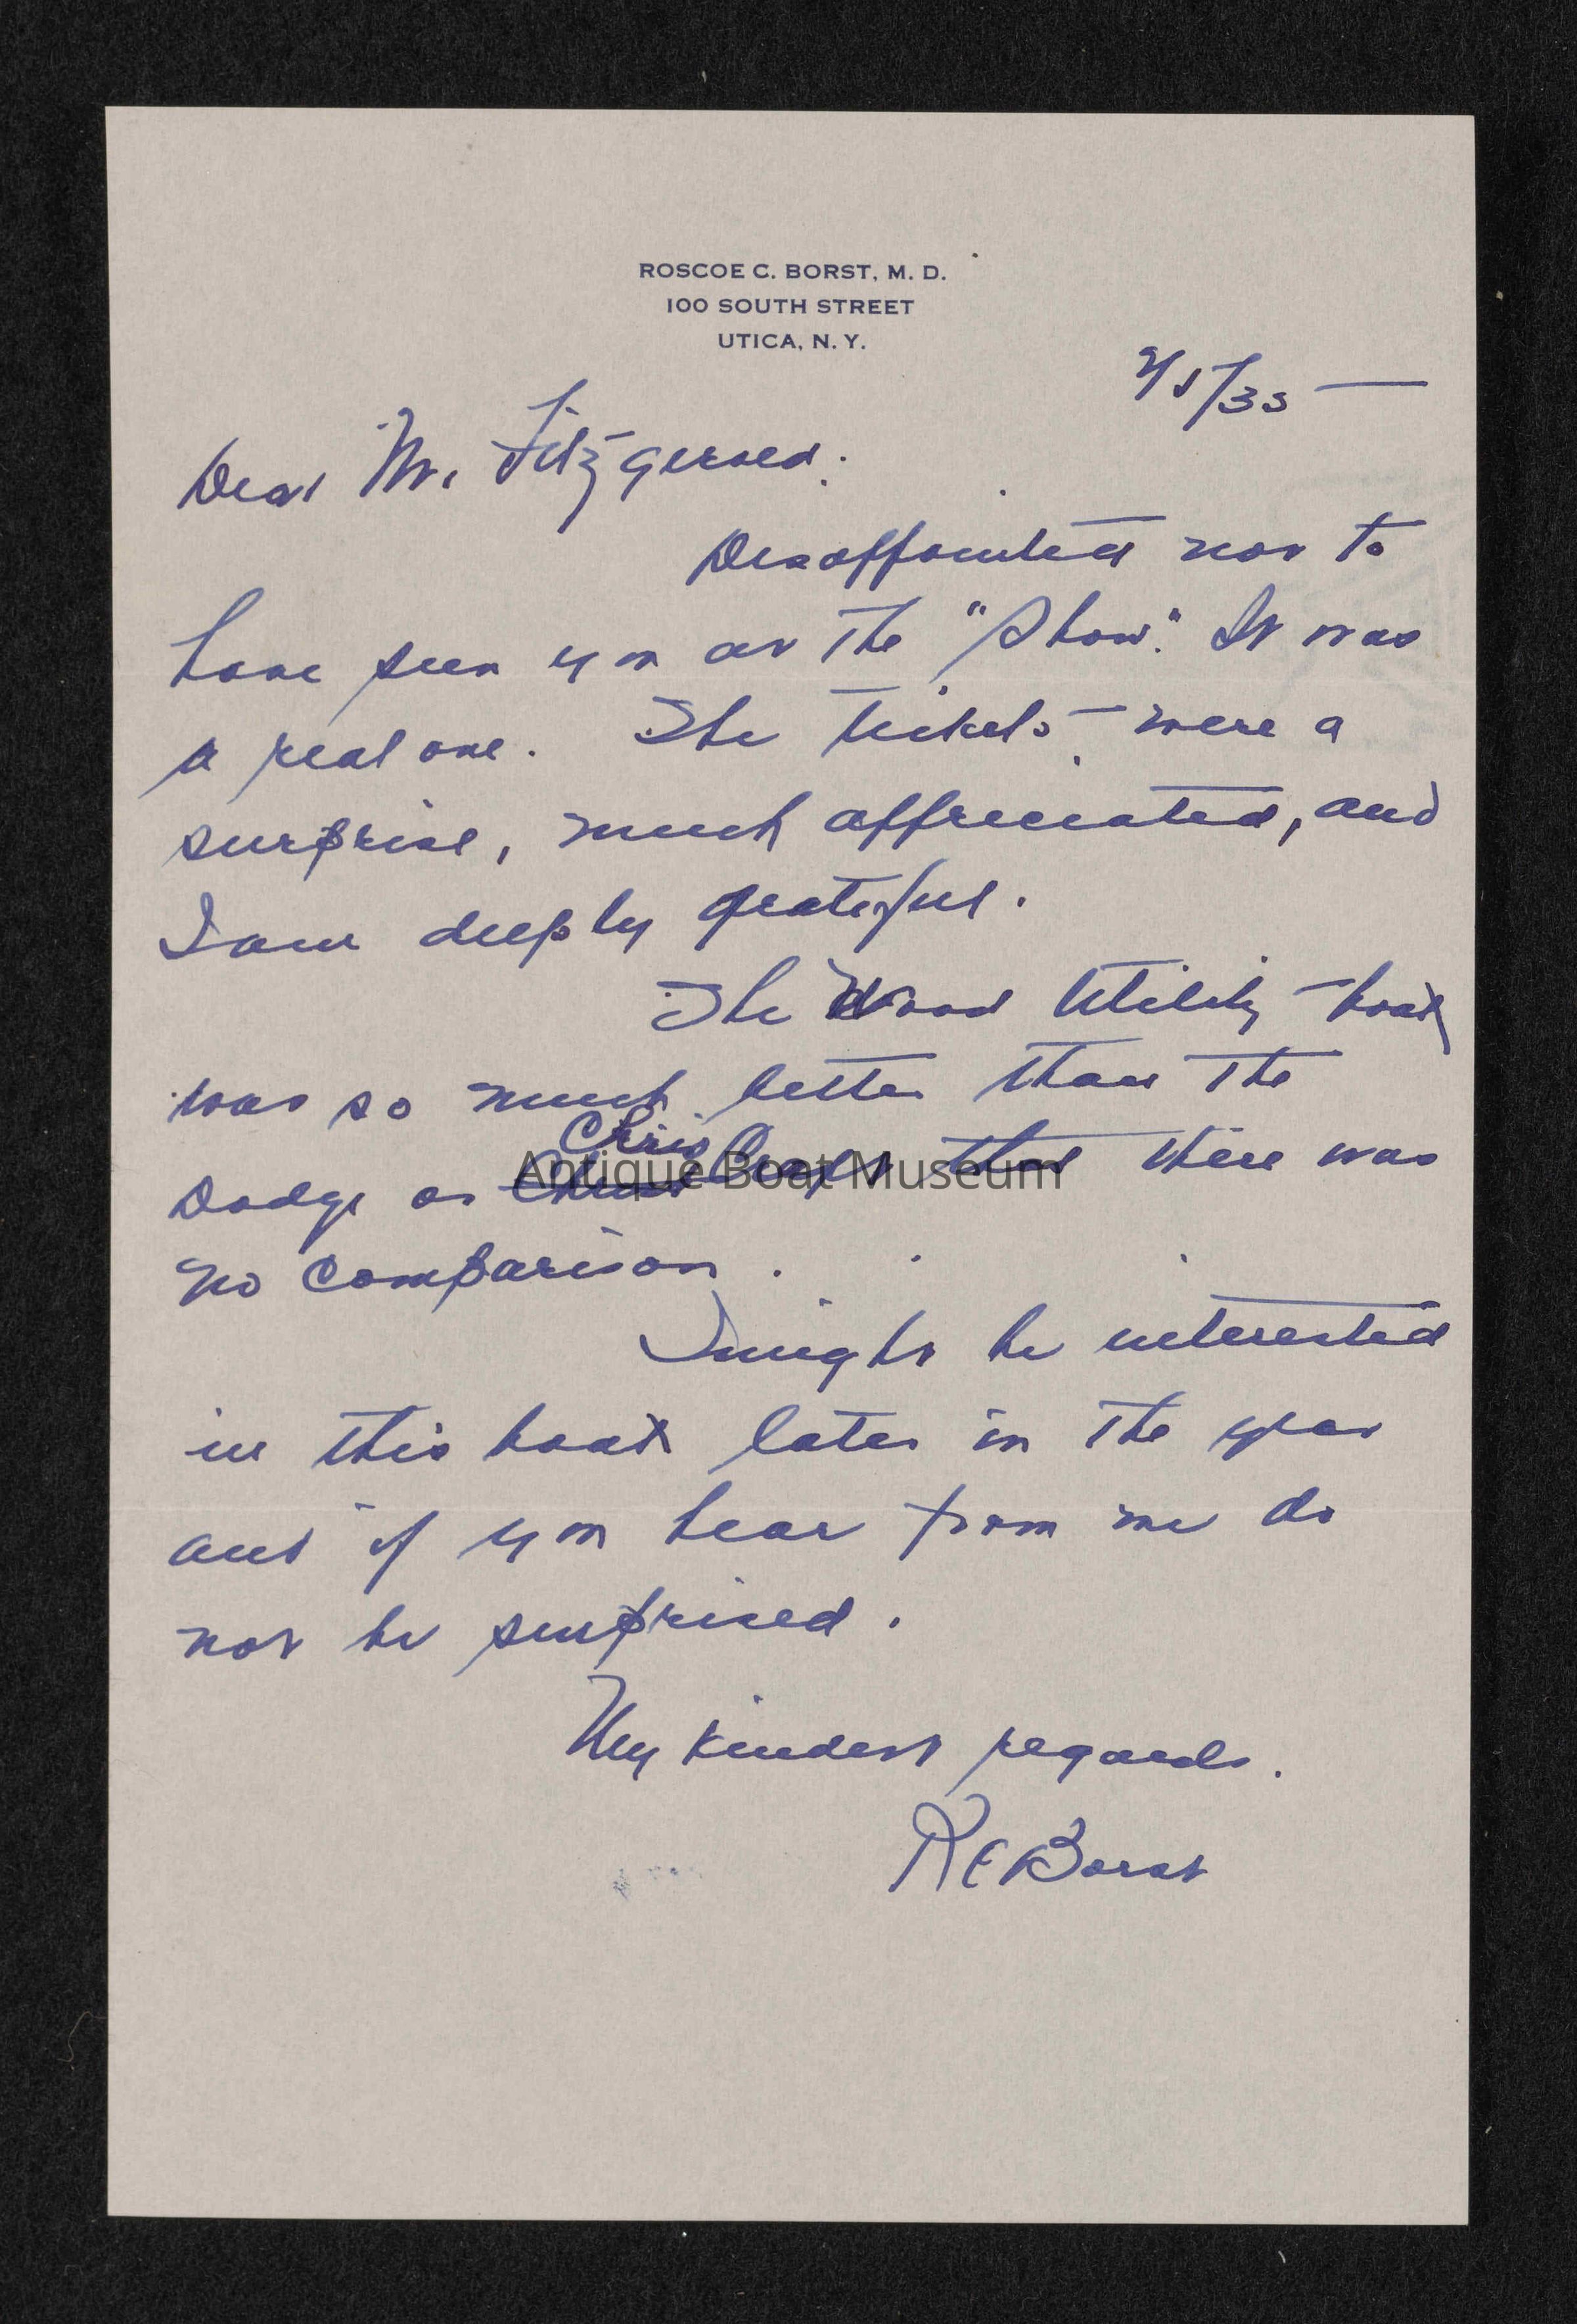 ROSCOE C. BORST, M. D.
100 SOUTH STREET
UTICA, N. Y.
Dear Mr. Fitzgerald.
Disappointed not to
have seen you at the "Show". It was
a real one. The tickets were a
surprise, much appreciated, and
I am deeply grateful.
The Wood Utility boat
was so much better than the
Dodge or Chris Craft that there was
no comparison.
I might be interested
in this boat later in the year
and if you hear from me do
not be surprised.
My kindest regards.
RCBorst
Antique Boat Museum